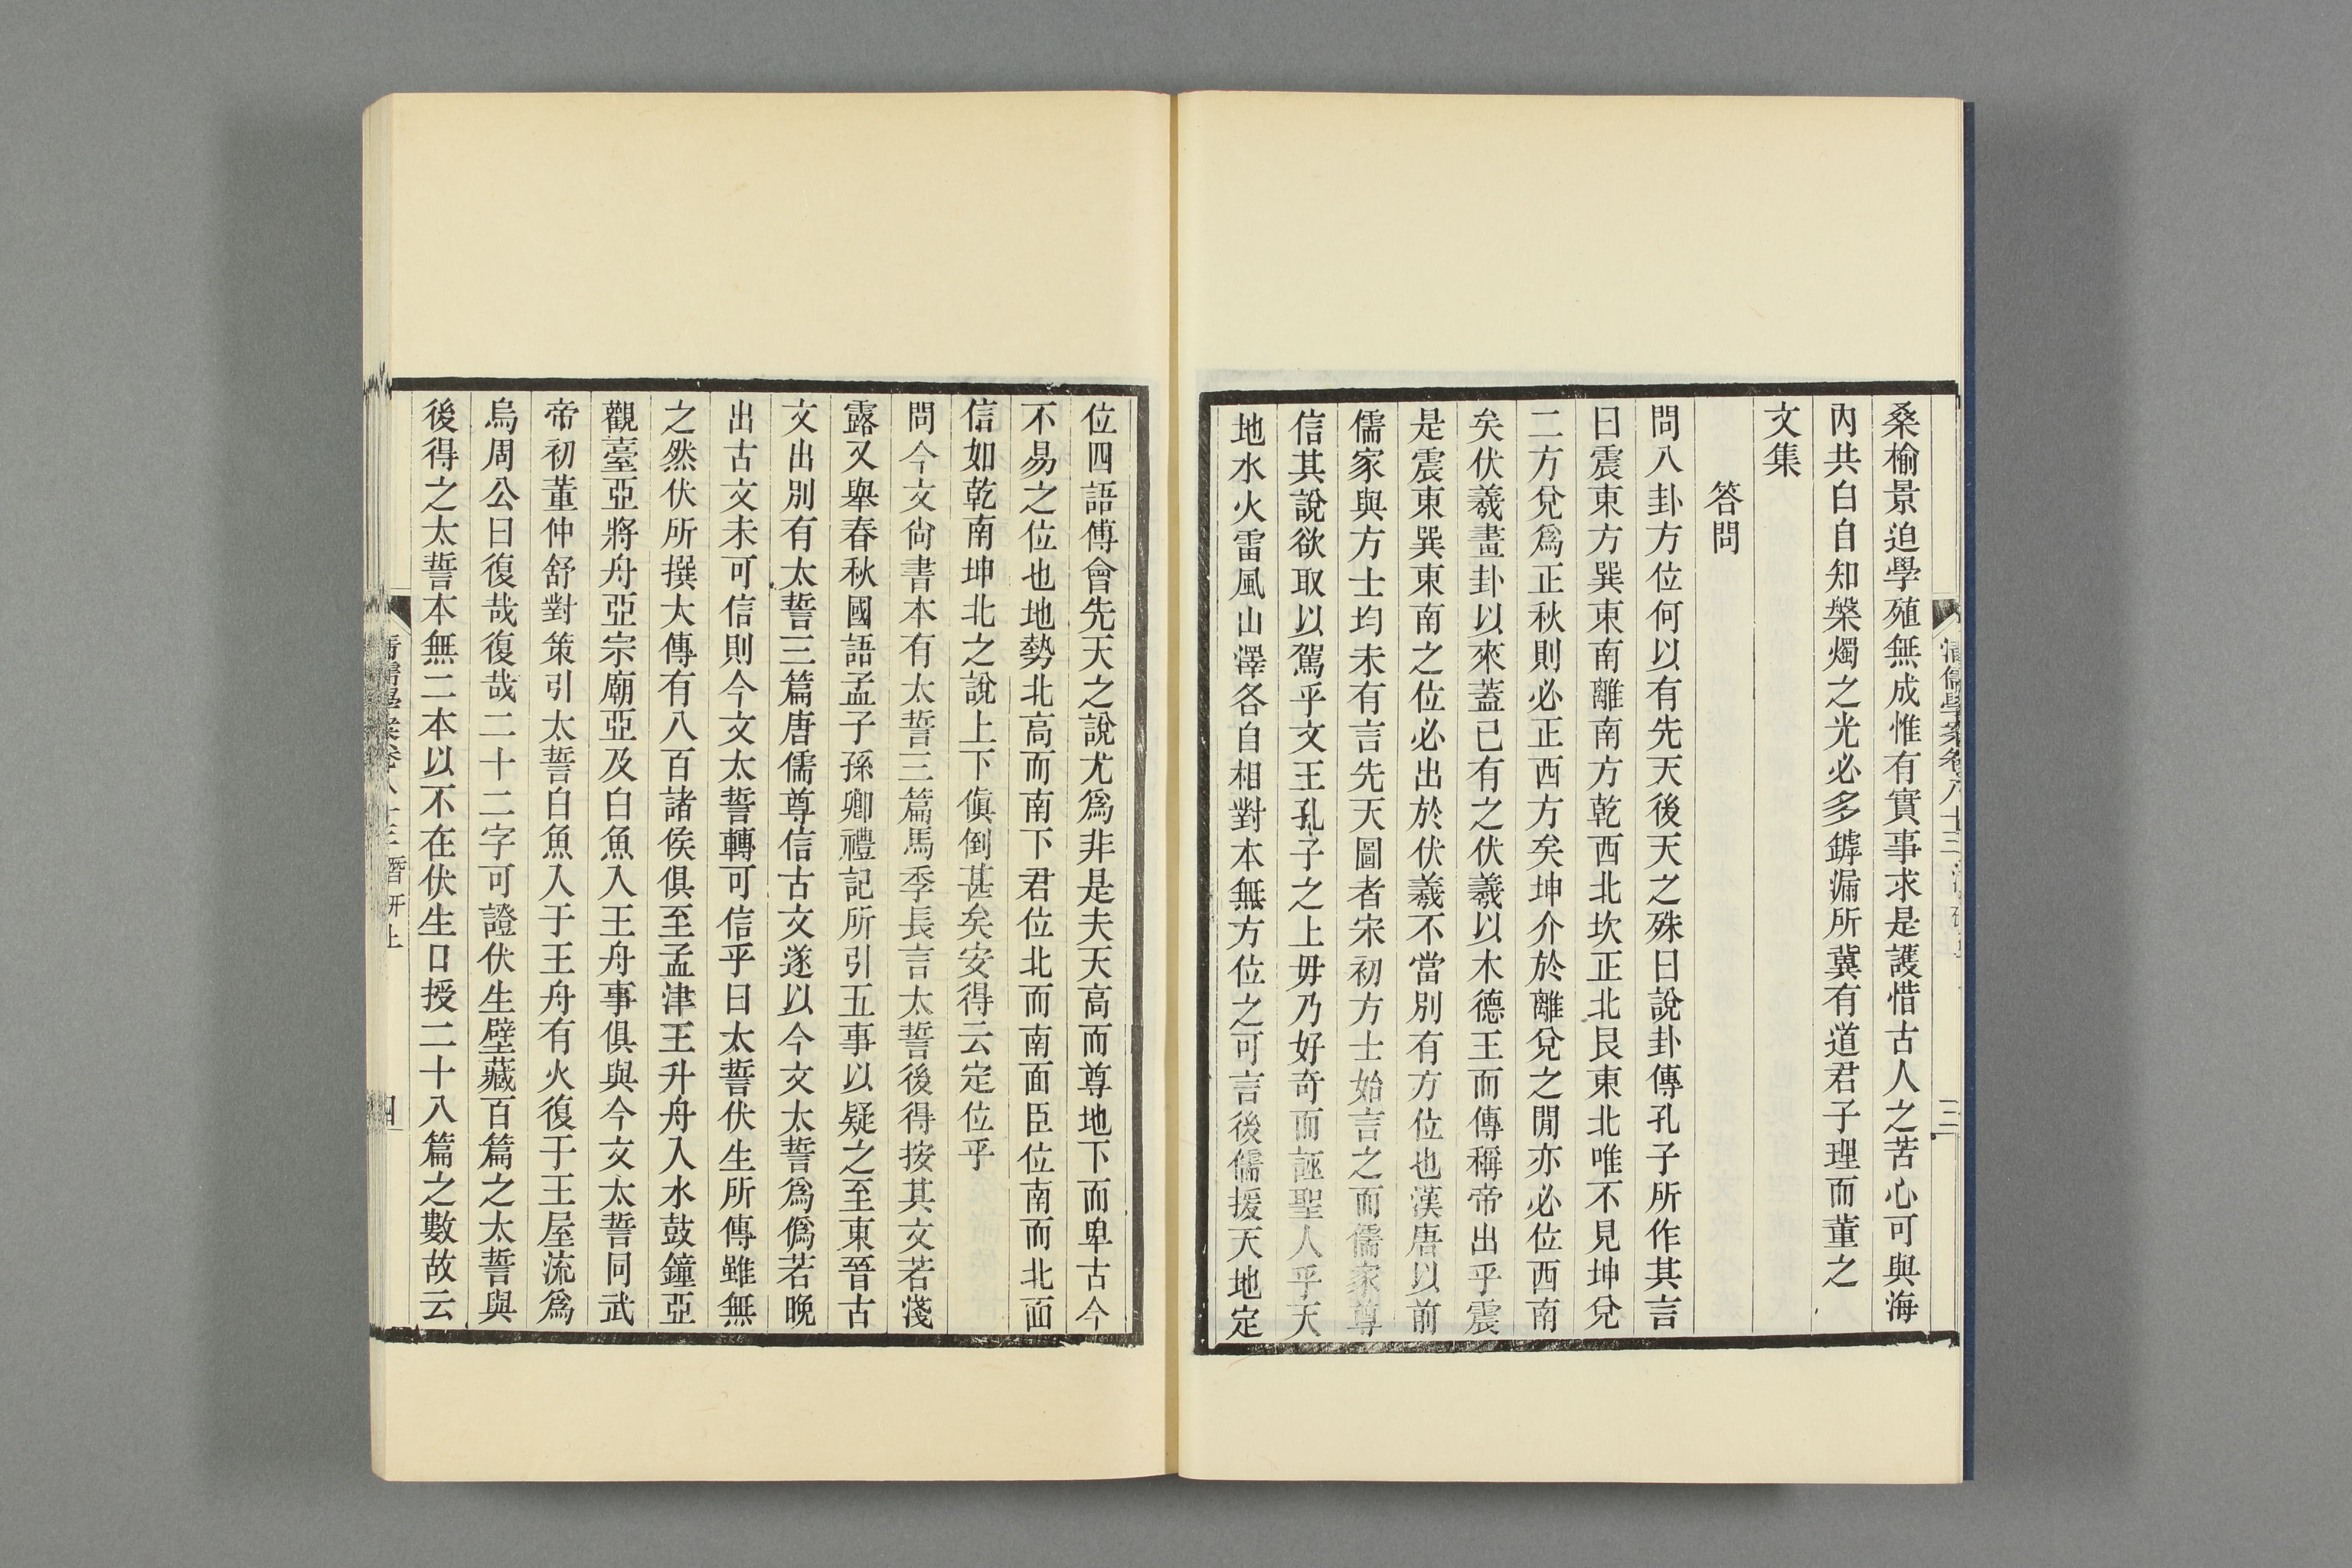 桑榆景迫學殖無成惟有實事求是護惜古人之苦心可與海
內共白自知槃燭之光必多罅漏所冀有道君子理而董之
文集
答問
問八卦方位何以有先天後天之殊曰說卦傳孔子所作其言
曰震東方巽東南離南方乾西北坎正北艮東北唯不見坤兌
二方兌爲正秋則必正西方矣坤介於離兌之閒亦必位西南
矣伏羲畫卦以來蓋已有之伏羲以木德王而傳稱帝出乎震
是震東巽東南之位必出於伏羲不當別有方位也漢唐以前
儒家與方士均未有言先天圖者宋初方士始言之而儒家尊
信其說欲取以駕乎文王孔子之上毋乃好奇而誣聖人乎天
地水火雷風山澤各自相對本無方位之可言後儒援天地定
位四語傅會先天之說尤爲非是夫天高而尊地下而卑古今
不易之位也地勢北高而南下君位北而南面臣位南而北面
信如乾南坤北之說上下傎倒甚矣安得云定位乎
問今文尙書本有太誓三篇馬季長言太誓後得按其文若淺
露又舉春秋國語孟子孫卿禮記所引五事以疑之至東晉古
文出別有太誓三篇唐儒尊信古文遂以今文太誓爲僞若晚
出古文未可信則今文太誓轉可信乎曰太誓伏生所傳雖無
之然伏所撰大傳有八百諸侯俱至孟津王升舟入水鼓鐘亞
觀臺亞將舟亞宗廟亞及白魚入王舟事俱與今文太誓同武
帝初董仲舒對策引太誓白魚入于王舟有火復于王屋流爲
烏周公曰復哉復哉二十二字可證伏生壁藏百篇之太誓與
後得之太誓本無二本以不在伏生口授二十八篇之數故云
清儒學案卷八十三 潛研上
四
清儒學案卷八十三
三